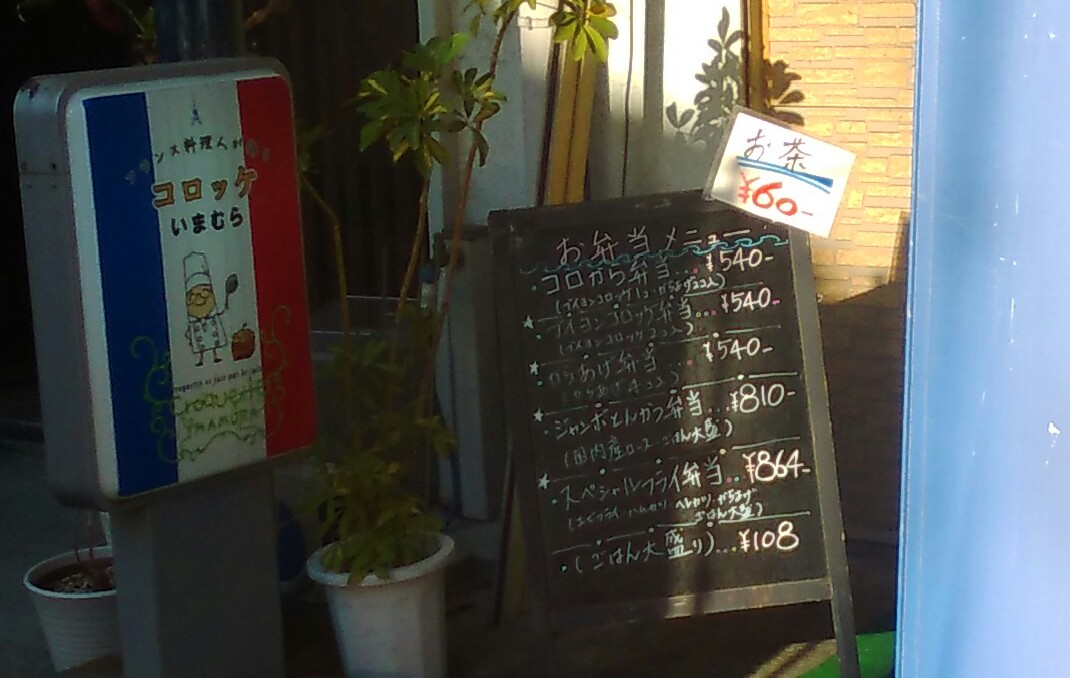 フランス料理人が
コロッケ
いまむら
Croquette
IMAMURA
お茶
¥60-
お弁当メニュー
・コロから弁当...¥540-
(ブイヨンコロッケ1コ・からあげ2コ入)
★ブイヨンコロッケ弁当...¥540-
(ブイヨンコロッケ2コ入)
★からあげ弁当 ¥540-
(からあげ4コ入)
★・ジャンボとんかつ弁当...¥810-
(国内産ロース・ごはん大盛)
★・スペシャルフライ弁当...¥864-
(エビフライ・ハムカツ・ヘレカツ・からあげ
ごはん大盛)
・(ごはん大盛り)...¥108